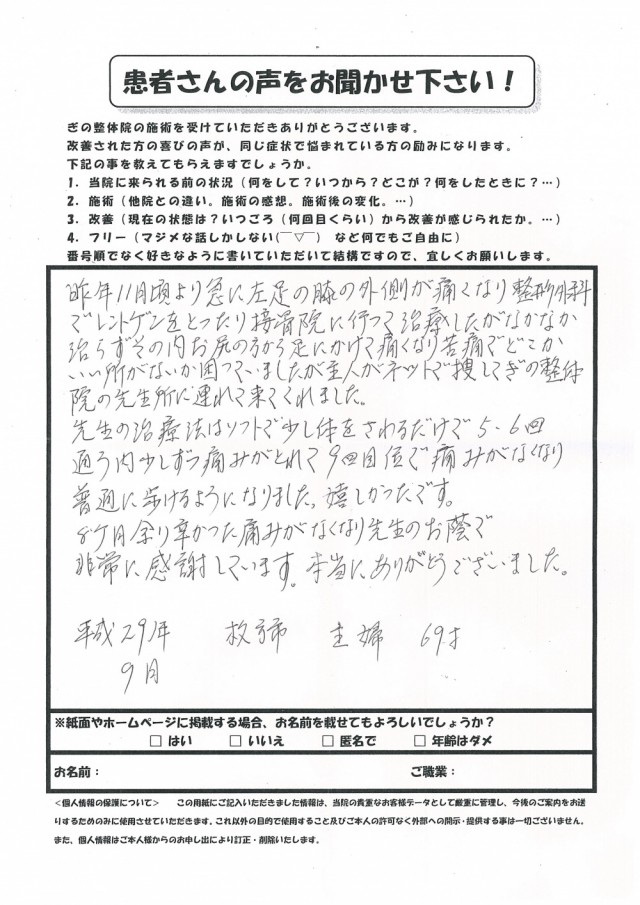 患者さんの声をお聞かせ下さい！
ぎの整体院の施術を受けていただきありがとうございます。
改善された方の喜びの声が、同じ症状で悩まれている方の励みになります。
下記の事を教えてもらえますでしょうか。
1．当院に来られる前の状況（何をして？いつから？どこが？何をしたときに？…）
2．施術（他院との違い。施術の感想。施術後の変化。…）
3．改善（現在の状態は？いつごろ（何回目くらい）から改善が感じられたか。…）
4．フリー（マジメな話しかしない(￣▽￣)　など何でもご自由に）
番号順でなく好きなように書いていただいて結構ですので、宜しくお願いします。
昨年11月頃より急に左足の膝の外側が痛くなり整形外科
でレントゲンをとったり接骨院に行って治療したがなかなか
治らずその内お尻の方から足にかけて痛くなり苦痛でどこか
いい所がないか困っていましたが主人がネットで捜してぎの整体
院の先生所に連れて来てくれました。
先生の治療法はソフトで少し体をさわるだけで5、6回
通う内少しずつ痛みがとれて9回目位で痛みがなくなり
普通に歩けるようになりました。嬉しかったです。
8ケ月余り辛かった痛みがなくなり先生のお蔭で
非常に感謝しています。本当にありがとうございました。
平成29年　枚方市　主婦　69才
9月
※紙面やホームページに掲載する場合、お名前を載せてもよろしいでしょうか？
□ はい　□ いいえ　□ 匿名で　□ 年齢はダメ
お名前：　ご職業：
＜個人情報の保護について＞　この用紙にご記入いただきました情報は、当院の貴重なお客様データとして厳重に管理し、今後のご案内をお送
りするためのみに使用させていただきます。これ以外の目的で使用すること及びご本人の許可なく外部への開示・提供する事は一切ございません。
また、個人情報はご本人様からのお申し出により訂正・削除いたします。